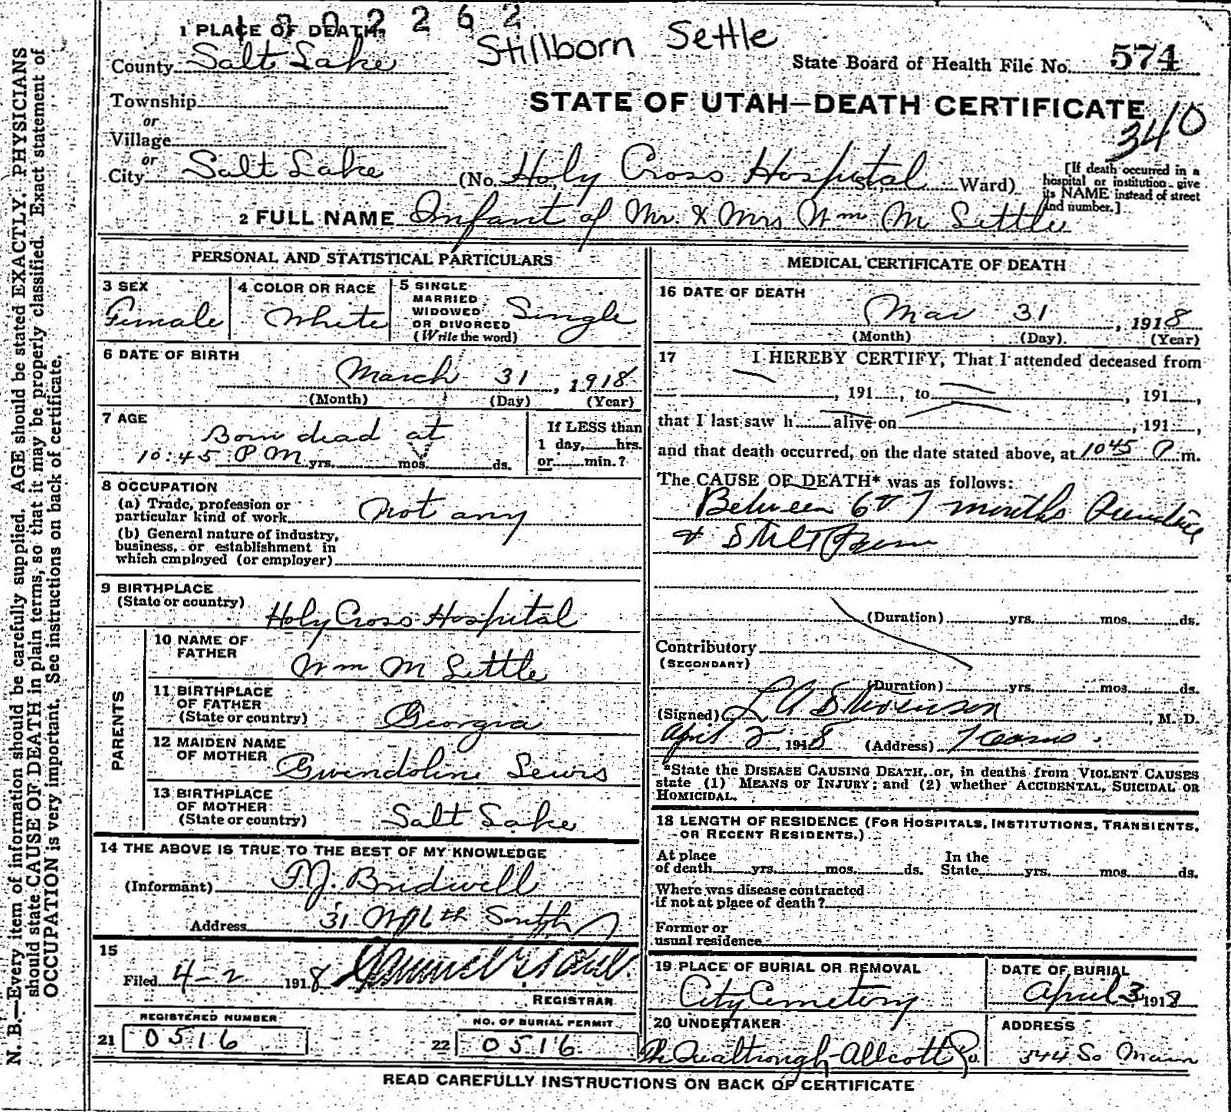 1802262
Stillborn Settle
1 PLACE OF DEATH
County Salt Lake
State Board of Health File No. 574
Township
or
Village
or
City Salt Lake
STATE OF UTAH—DEATH CERTIFICATE
340
(No. Holy Cross Hospital Ward)
[If death occurred in a
hospital or institution give
its NAME instead of street
and number.]
2 FULL NAME Infant of Mr. & Mrs Wm M Settle
PERSONAL AND STATISTICAL PARTICULARS
3 SEX
Female
4 COLOR OR RACE
White
5 SINGLE
MARRIED
WIDOWED
OR DIVORCED
(Write the word)
Single
6 DATE OF BIRTH
March 31, 1918
(Month) (Day) (Year)
7 AGE
Born dead at
10:45 P M yrs. mos. ds.
If LESS than
1 day, hrs.
or min.?
8 OCCUPATION
(a) Trade, profession or
particular kind of work not any
(b) General nature of industry,
business, or establishment in
which employed (or employer)
9 BIRTHPLACE
(State or country) Holy Cross Hospital
PARENTS
10 NAME OF
FATHER
Wm M Settle
11 BIRTHPLACE
OF FATHER
(State or country) Georgia
12 MAIDEN NAME
OF MOTHER Gwendoline Lewis
13 BIRTHPLACE
OF MOTHER
(State or country) Salt Lake
14 THE ABOVE IS TRUE TO THE BEST OF MY KNOWLEDGE
(Informant) F.J. Bridwell
Address 31 6th South
15
Filed 4-2 1918
REGISTRAR
REGISTERED NUMBER
21 0516
NO. OF BURIAL PERMIT
22 0516
MEDICAL CERTIFICATE OF DEATH
16 DATE OF DEATH
Mar 31, 1918
(Month) (Day) (Year)
17 I HEREBY CERTIFY, That I attended deceased from
, 191 , to , 191 ,
that I last saw h alive on , 191 ,
and that death occurred, on the date stated above, at 10 45 P m.
The CAUSE OF DEATH* was as follows:
Between 6 & 7 months
& Still Born
(Duration) yrs. mos. ds.
Contributory
(SECONDARY)
(Duration) yrs. mos. ds.
(Signed) L A Stevenson, M. D.
April 2 1918 (Address) Kearns.
*State the DISEASE CAUSING DEATH, or, in deaths from VIOLENT CAUSES
state (1) MEANS OF INJURY; and (2) whether ACCIDENTAL, SUICIDAL OR
HOMICIDAL.
18 LENGTH OF RESIDENCE (FOR HOSPITALS, INSTITUTIONS, TRANSIENTS,
OR RECENT RESIDENTS.)
At place
of death yrs. mos. ds.
In the
State yrs. mos. ds.
Where was disease contracted
if not at place of death?
Former or
usual residence
19 PLACE OF BURIAL OR REMOVAL
City Cemetery
DATE OF BURIAL
April 3 1918
20 UNDERTAKER
Qualtrough-Allcott Co.
ADDRESS
344 So Main
READ CAREFULLY INSTRUCTIONS ON BACK OF CERTIFICATE
N. B.—Every item of information should be carefully supplied. AGE should be stated EXACTLY. PHYSICIANS
should state CAUSE OF DEATH in plain terms, so that it may be properly classified. Exact statement of
OCCUPATION is very important. See instructions on back of certificate.